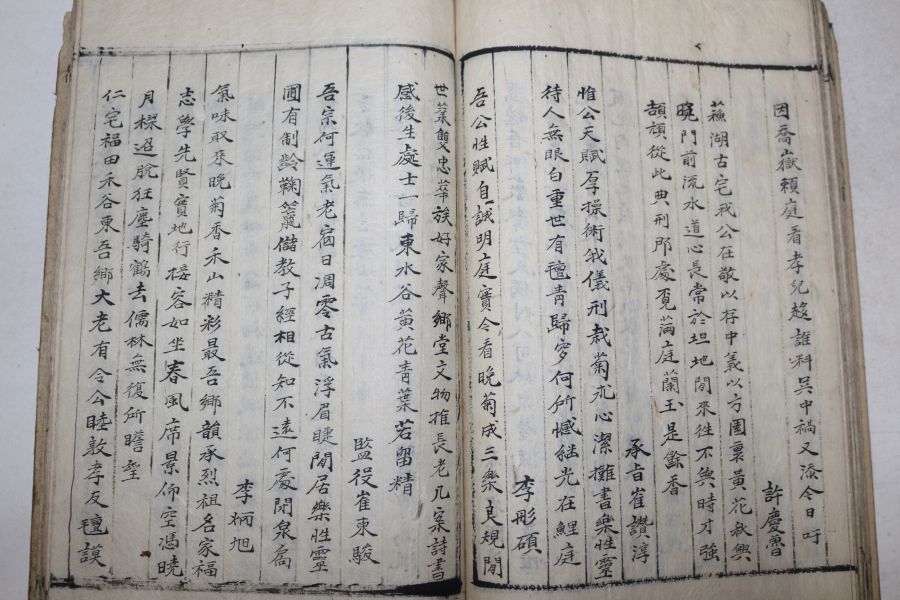 因喬嶽頼庭看孝兒趍誰料吳中禍又添今日吁
許慶魯
蘓湖古宅我公在敬以存中義以方園裏黃花秋興
晚門前流水道心長常於坦地閒來徃不與時才強
頡頏從此典刑那處覓滿庭蘭玉是馀香
承旨崔讚淳
惟公天賦厚操術我儀刑栽菊禿心潔攤書樂性靈
待人無眼白重世有氊青歸穸何所憾継光在鯉庭
李彤碩
吾公性賦自誠明庭實令看晚菊成三樂良規閒
世葉雙忠華族好家聲鄉堂文物推長老几案詩書
感後生處士一歸東水谷黃花青葉若留精
監役崔東駿
吾宗何運氣老宿日凋零古氣浮眉睫閒居樂性靈
圃有制齡鞠籯儲敎子經相從知不遠何處閉泉扃
李炳旭
氣味取來晚菊香禾山精彩最吾鄉韻承烈祖名家福
志學先賢實地行接容如坐春風席景仰空馮曉
月樑迢脫狂塵騎鶴去儒林無復所瞻望
仁宅福田禾谷東吾鄉大老有令公睦敦孝友